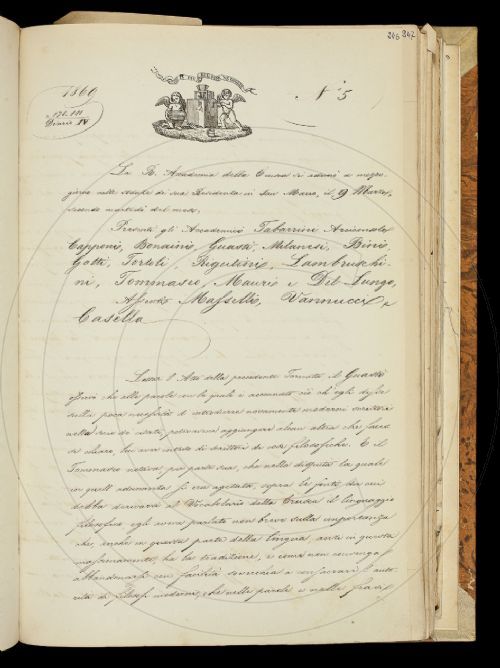 246 247
1869
N° 5
La R. Accademia della Crusca si adunò a mezzo
giorno nelle stanze di sua Residenza in San Marco, il 9 Marzo,
secondo martedì del mese.
Presenti gli Accademici Tabarrini Arciconsolo,
Capponi, Bonaini, Guasti, Milanesi, Bini,
Gotti, Tortoli, Bigutini, Lambruschi
ni, Tommaseo, Mauri e Del Lungo,
Assenti Maffei, Vannucci, e
Casella
Letto l'Atto della precedente Tornata il Guasti
che alle parole con le quali è accennato ciò che egli disse
sulla poca necessità d'introdurre novamente moderni scrittori
nella serie de' citati, potevasi aggiungere alcun altra che facesse
chiaro lui aver inteso di scrittori di cose filosofiche. E il
Tommaseo notava per parte sua, che nella disputa la quale
in quell'adunanza si era agitata, sopra le fonti da cui
debba derivare al Vocabolario della Crusca il linguaggio
filosofico egli aveva parlato non breve sulla importanza
che, anche in questa parte della lingua, anzi in questa
massimamente, ha la tradizione, e come non convenga
abbandonarsi con facilità soverchia a consacrare l'auto
rità di filosofi moderni, che nelle parole e nelle frasi